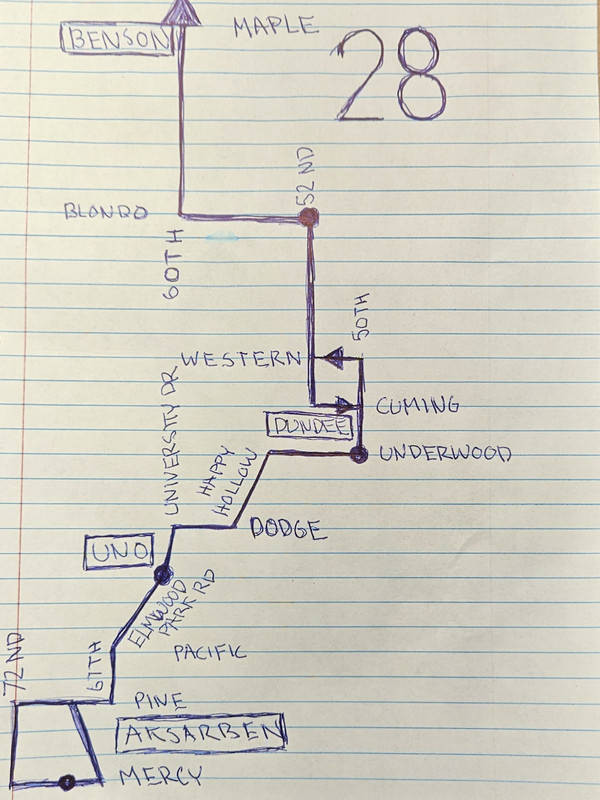 MAPLE
28
BENSON
52ND
BLONDO
60TH
50TH
WESTERN
UNIVERSITY DR
CUMING
DUNDEE
HAPPY
HOLLOW
UNDERWOOD
DODGE
UNO
ELMWOOD
PARK RD
72ND
67TH
PACIFIC
PINE
AKSARBEN
MERCY